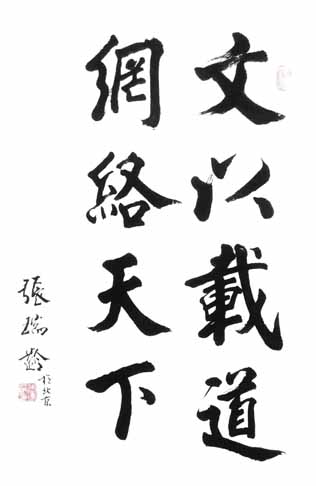 文以載道
網絡天下
張瑞齡
於北京